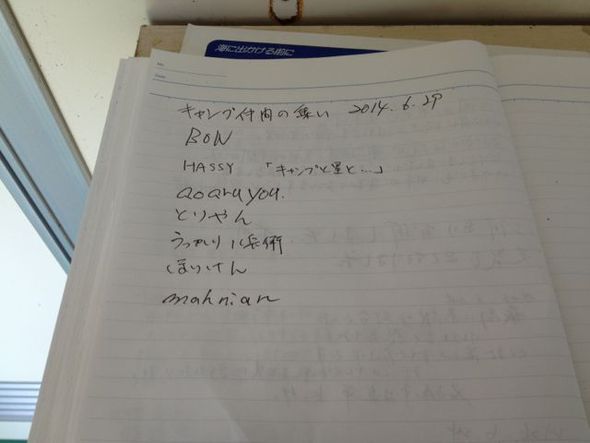 海に出かける前に
No.
Date
キャンプ仲間の集い 2014.6.29
BON
HASSY 「キャンプと星と…」
aoaruyou.
とりやん
うっかり八兵衛
ほりけん
mahnian